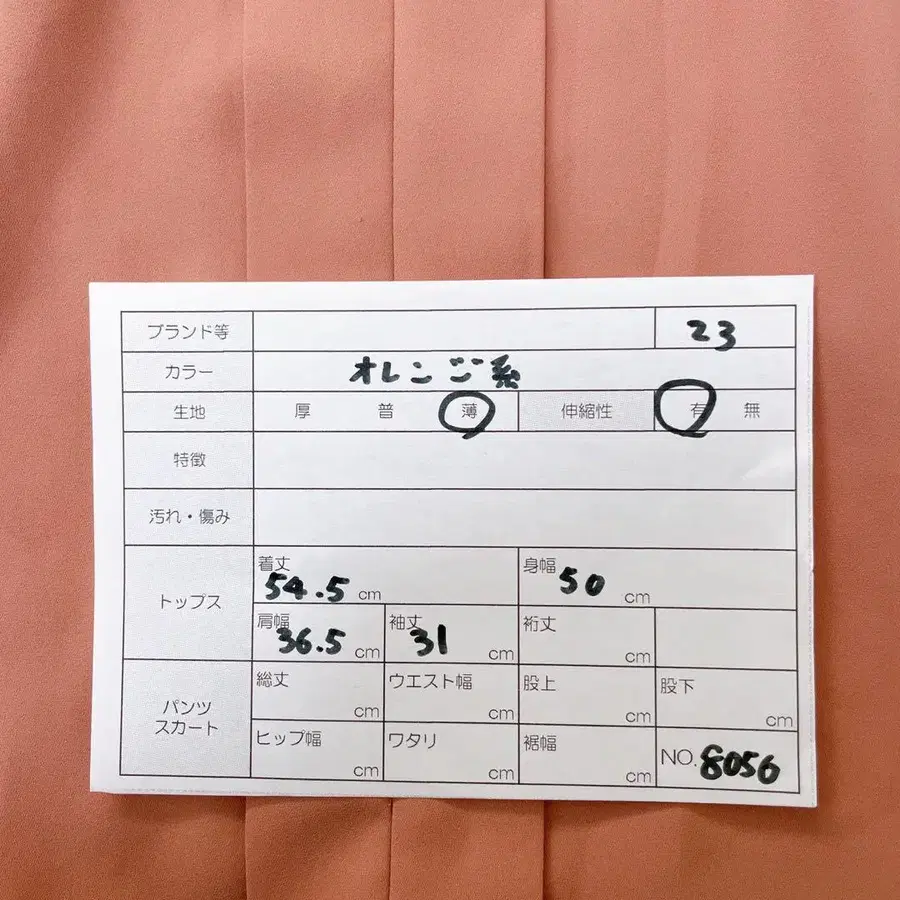 ブランド等 23
カラー オレンジ系
生地 厚 普 薄 伸縮性 有 無
特徴
汚れ・傷み
トップス
着丈 54.5 cm 身幅 50 cm
肩幅 36.5 cm 袖丈 31 cm 裄丈 cm
パンツ
スカート
総丈 cm ウエスト幅 cm 股上 cm 股下 cm
ヒップ幅 cm ワタリ cm 裾幅 cm NO. 8056